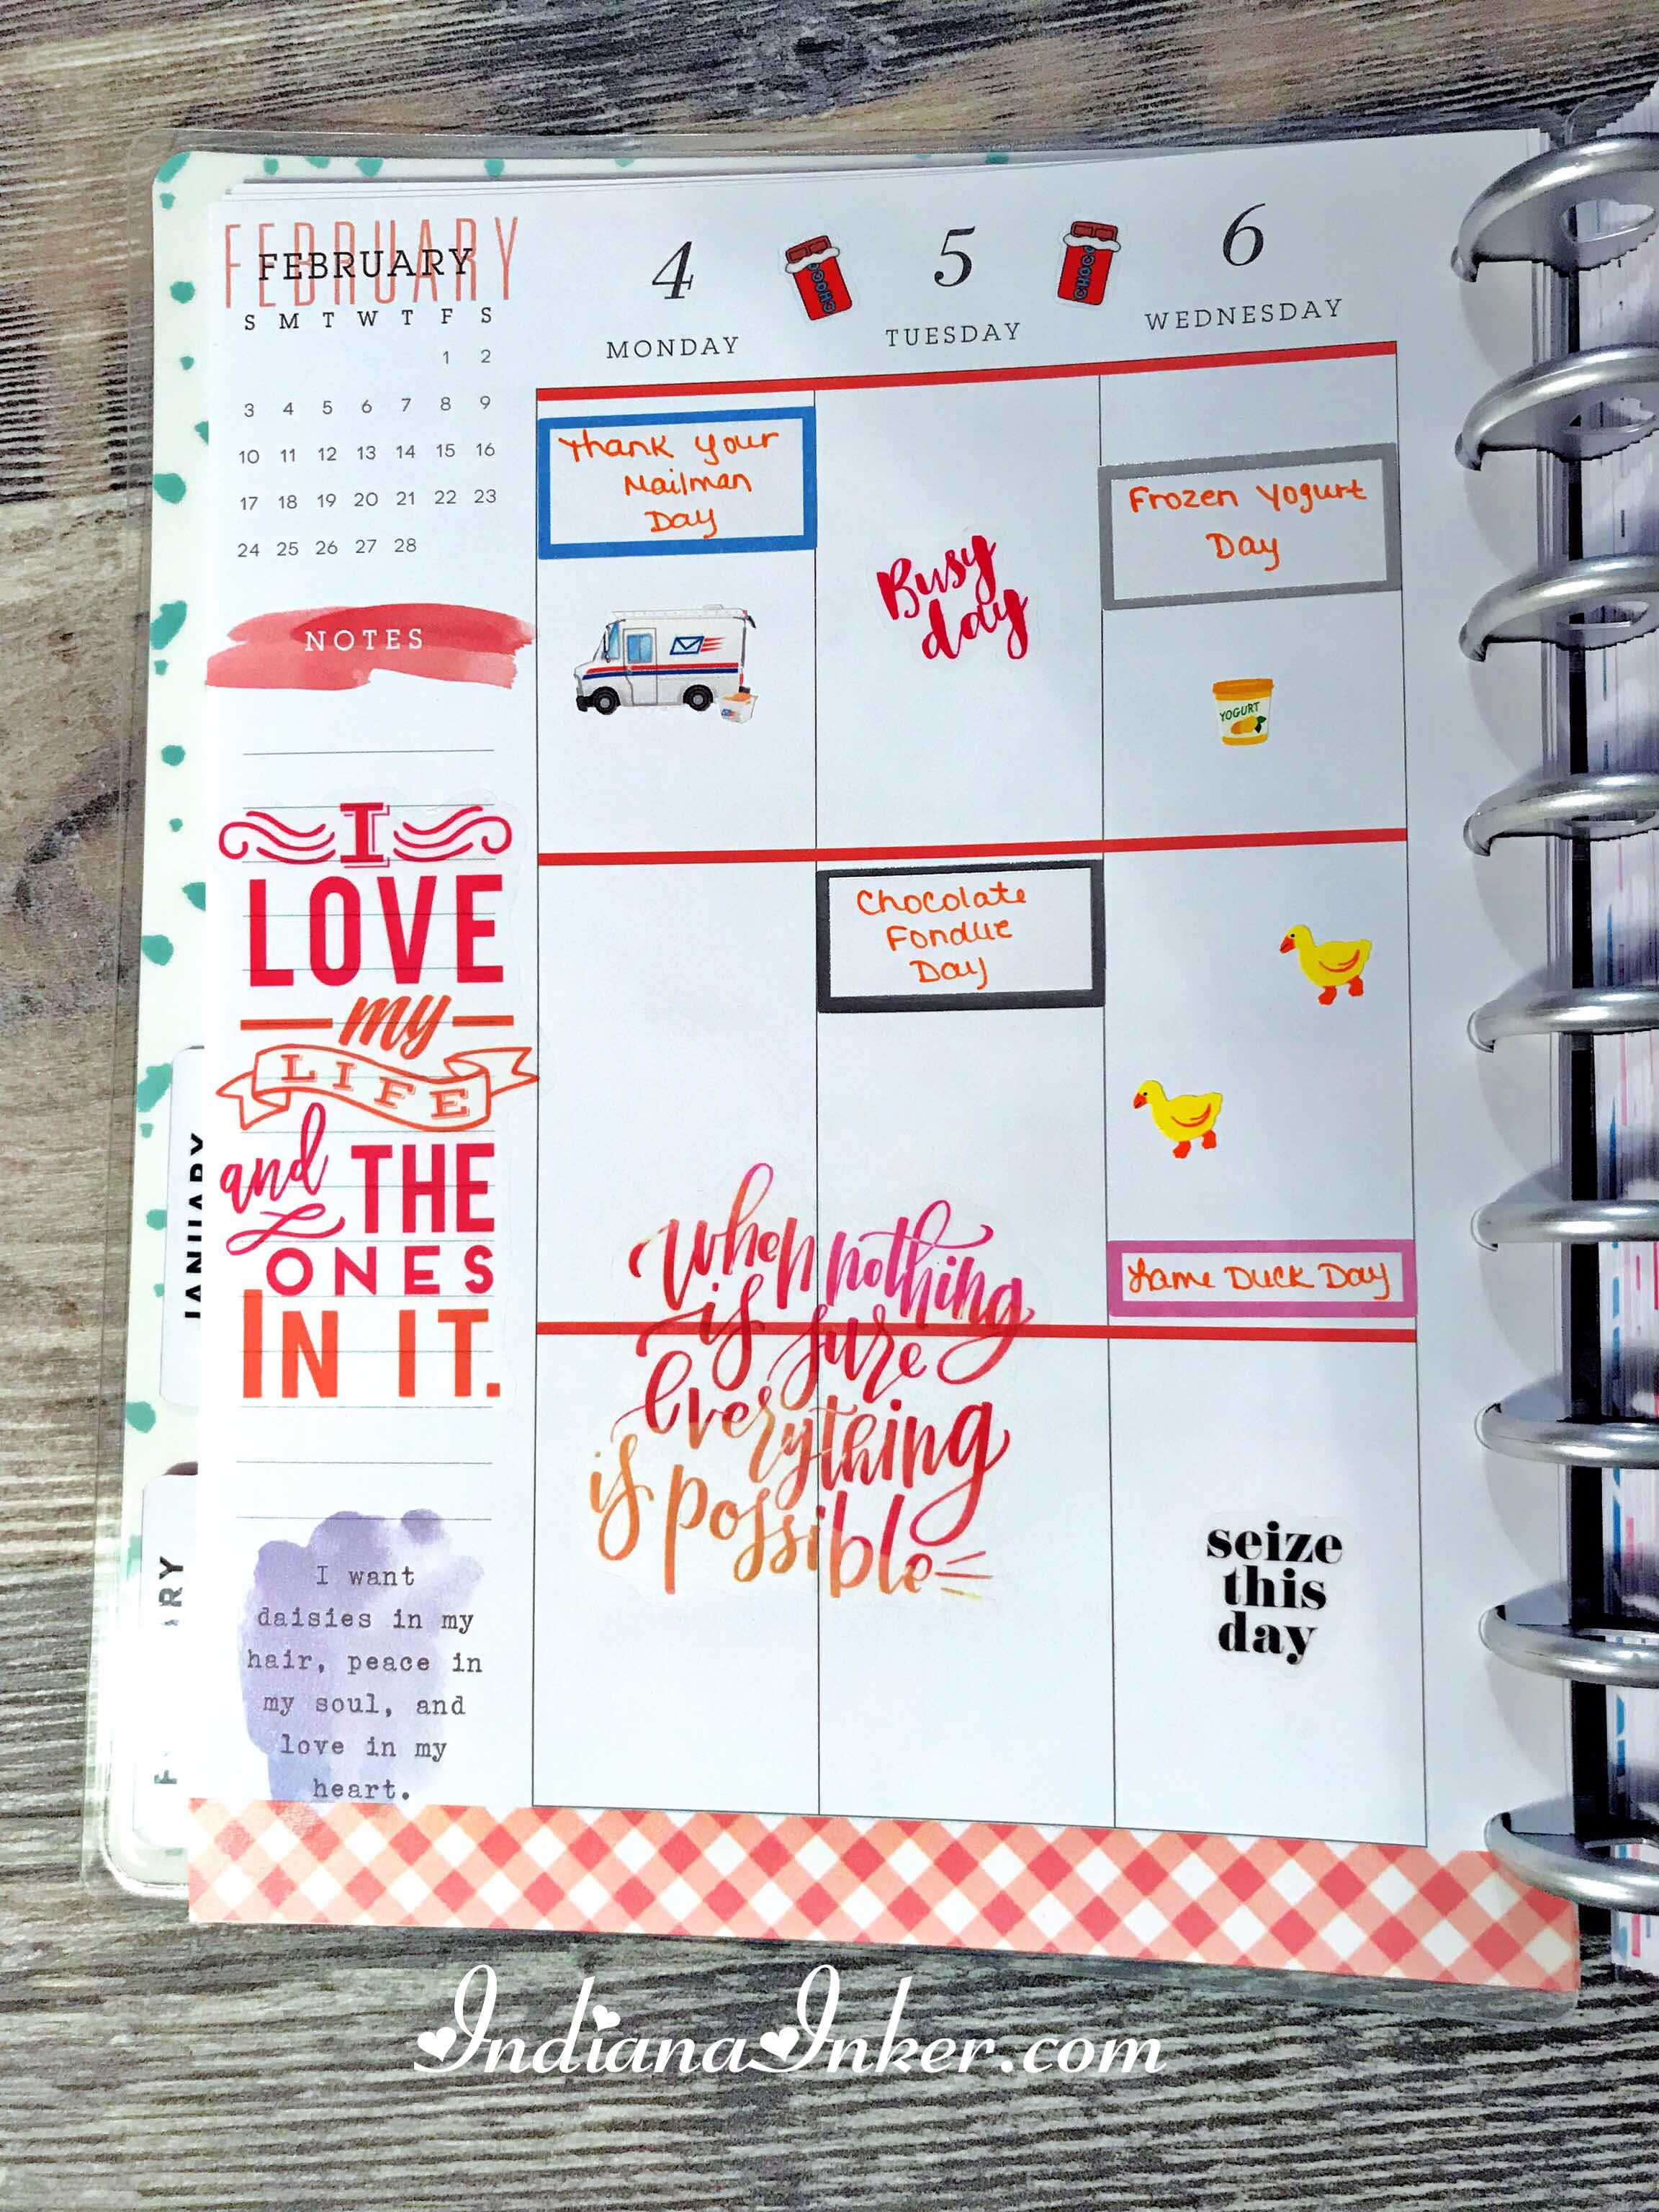 FEBRUARY
FEBRUARY
S M T W T F S
1 2
3 4 5 6 7 8 9
10 11 12 13 14 15 16
17 18 19 20 21 22 23
24 25 26 27 28
NOTES
I
LOVE
my
LIFE
and THE
ONES
IN IT.
I want
daisies in my
hair, peace in
my soul, and
love in my
heart.
4
MONDAY
Thank your
Mailman
Day
CHOCO
5
TUESDAY
Busy
day
Chocolate
Fondue
Day
When nothing
is sure
Everything
is possible
CHOCO
6
WEDNESDAY
Frozen Yogurt
Day
YOGURT
Lame Duck Day
seize
this
day
JANUARY
IndianaInker.com